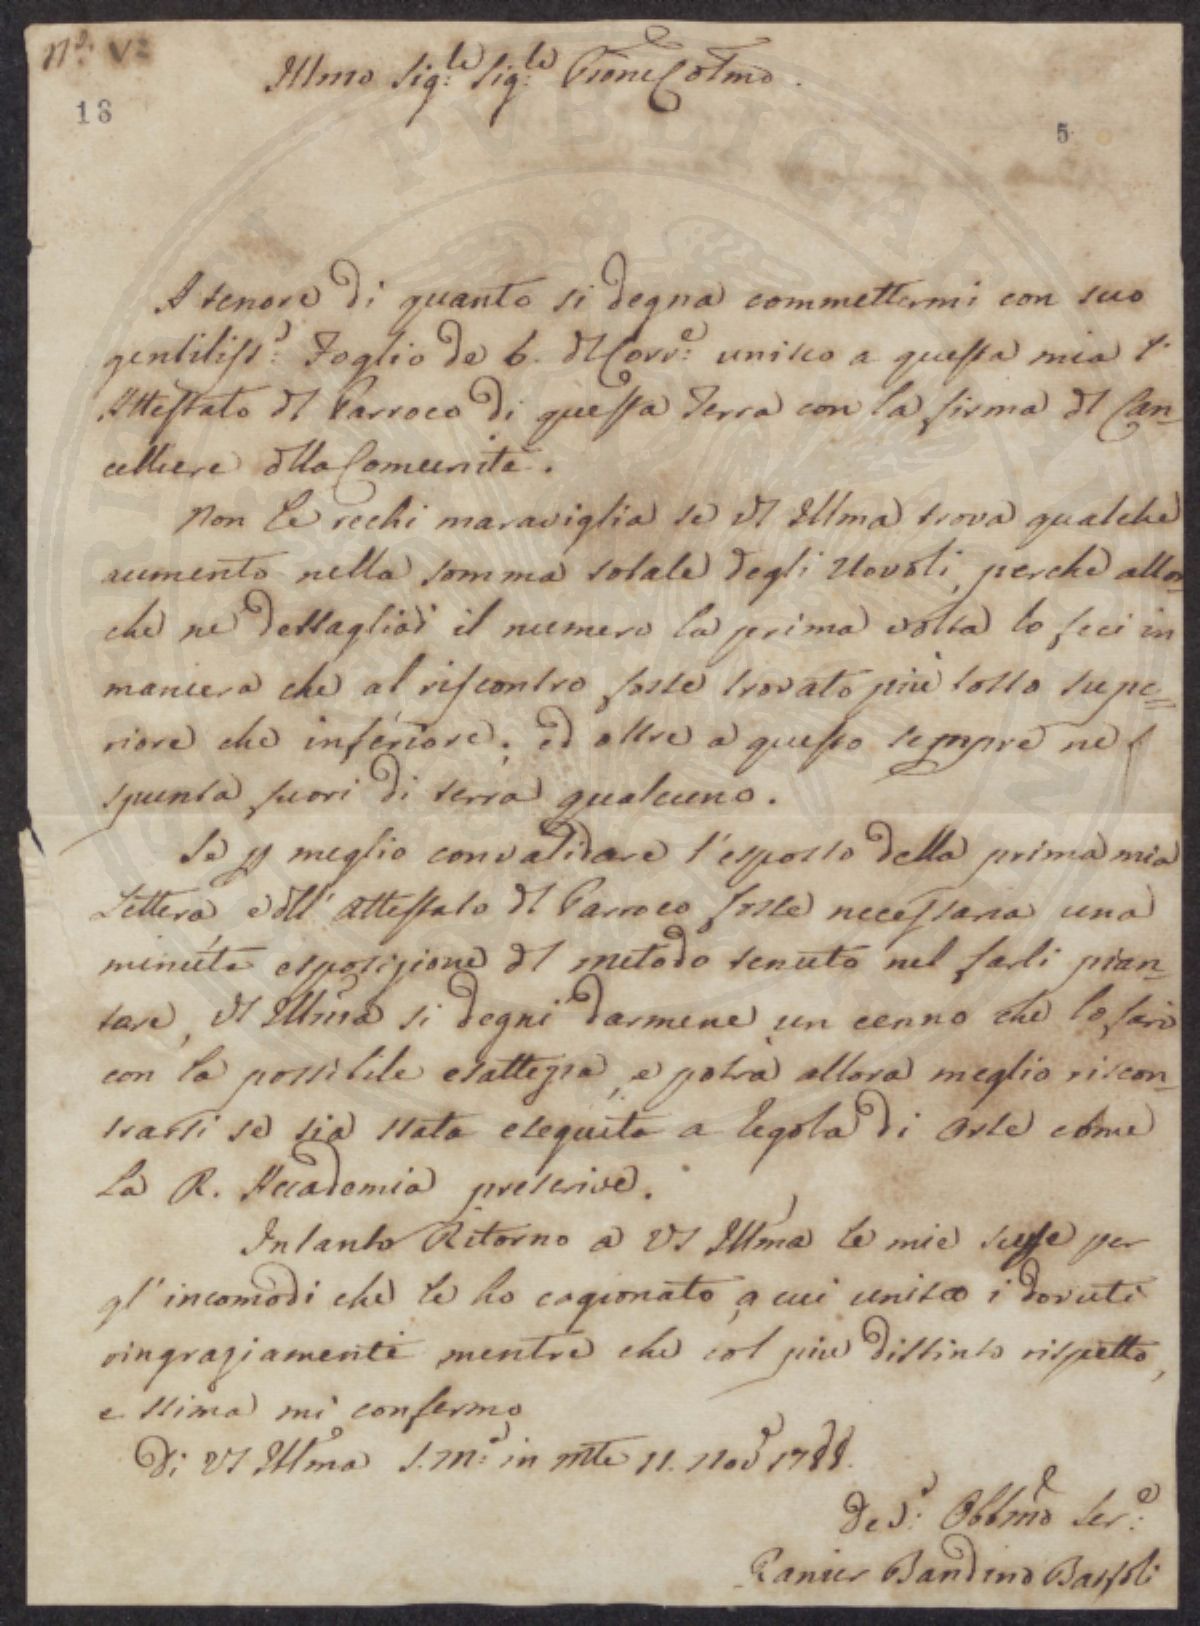 N.º V.º
Illmo Sig.re Sig.re Prone Colmo.
13
5
A tenore di quanto si degna commettermi con suo
gentiliss.º Foglio de 6. del Corr.e unisco a questa mia l'
Attestato del Parroco di questa Terra con la firma del Can-
celliere della Comunità.
Non Le rechi maraviglia se VS Illma trova qualche
aumento nella somma totale degli Uovoli, perche allor-
che ne dettagliai il numero la prima volta lo feci in
maniera che al riscontro fosse trovato più tosto supe-
riore che inferiore; ed oltre a questo sempre ne
spunta fuori di terra qualcuno.
Se p meglio convalidare l'esposto della prima mia
Lettera, e dell' attestato del Parroco fosse necessaria una
minuta esposizione del metodo tenuto nel farli pian-
tare, VS Illma si degni darmene un cenno che lo farò
con la possibile esattezza, e potrà allora meglio riscon-
trarsi se sia stata eseguita a regola di arte come
la R. Accademia prescrive.
Intanto Ritorno a VS Illma le mie scuse per
gl'incomodi che le ho cagionato, a cui unisco i dovuti
ringraziamenti mentre che col più distinto rispetto,
e stima mi confermo
Di VS Illma S. M.a in Mte 11. Nov.e 1788.
De.º Obblmo Ser.e
Ranier Bandino Bartoli